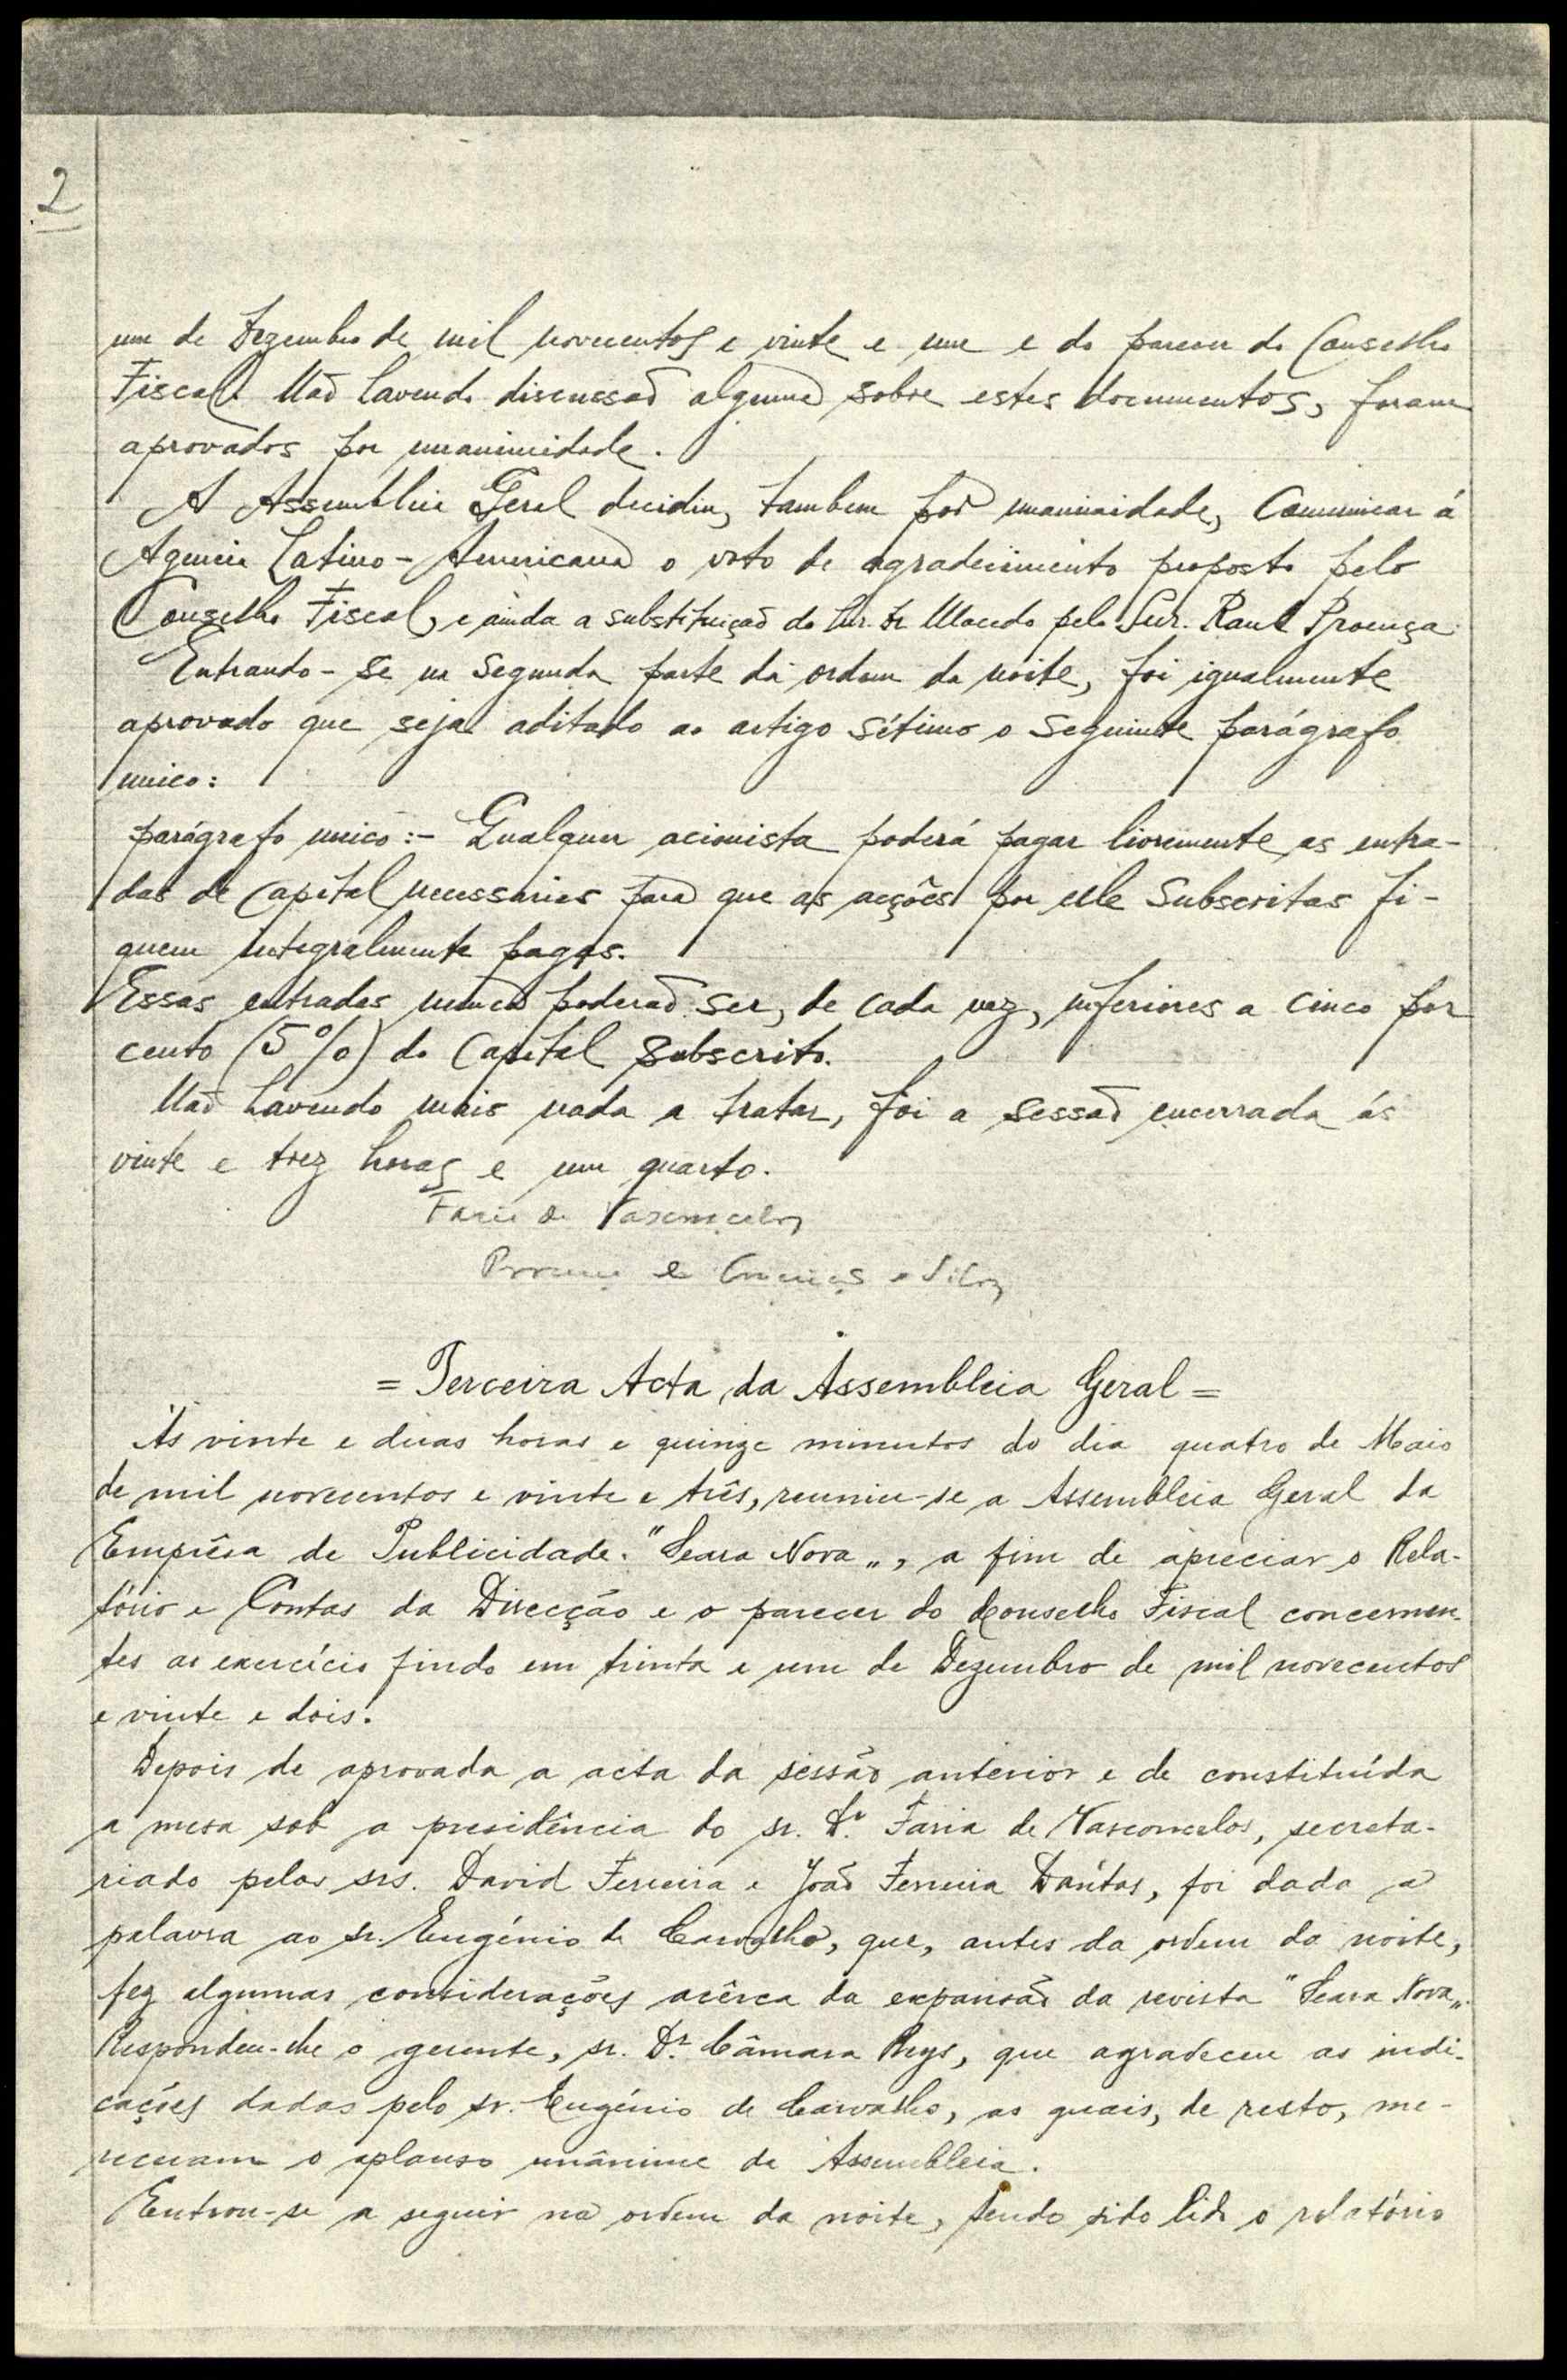 2
um de Dezembro de mil novecentos e vinte e um e do parecer do Conselho
Fiscal. Não havendo discussão alguma sobre estes documentos, foram
aprovados por unanimidade.
A Assembleia Geral decidiu, tambem por unanimidade, comunicar á
Agencia Latino-Americana o voto de agradecimento proposto pelo
Conselho Fiscal, e ainda a substituição do Snr. Dr Macedo pelo Snr. Raul Proença.
Entrando-se na segunda parte da ordem da noite, foi igualmente
aprovado que seja aditado ao artigo sétimo o seguinte parágrafo
unico:
parágrafo unico:- Qualquer acionista poderá pagar livremente as entra-
das de capital necessarias para que as acções por elle subscritas fi-
quem integralmente pagas.
Essas entradas nunca poderão ser, de cada vez, inferiores a cinco por
cento (5%) do capital subscrito.
Não havendo mais nada a tratar, foi a sessão encerrada ás
vinte e trez horas e um quarto.
Faria de Vasconcelos
e Silva
= Terceira Acta da Assembleia Geral =
Ás vinte e duas horas e quinze minutos do dia quatro de Maio
de mil novecentos e vinte e três, reuniu-se a Assembleia Geral da
Emprêsa de Publicidade "Seara Nova„, a fim de apreciar o Rela-
tório e Contas da Direcção e o parecer do Conselho Fiscal concernen-
tes ao exercício findo em trinta e um de Dezembro de mil novecentos
e vinte e dois.
Depois de aprovada a acta da sessão anterior e de constituída
a mesa sob a presidência do sr. Dr. Faria de Vasconcelos, secreta-
riado pelos srs. David Ferreira e João Ferreira Dantas, foi dada a
palavra ao sr. Eugénio de Carvalho, que, antes da ordem da noite,
fez algumas considerações acêrca da expansão da revista "Seara Nova„.
Respondeu-lhe o gerente, sr. Dr. Câmara Reys, que agradeceu as indi-
cações dadas pelo sr. Eugénio de Carvalho, as quais, de resto, me-
receram o aplauso unânime da Assembleia.
Entrou-se a seguir na ordem da noite, tendo sido lido o relatório